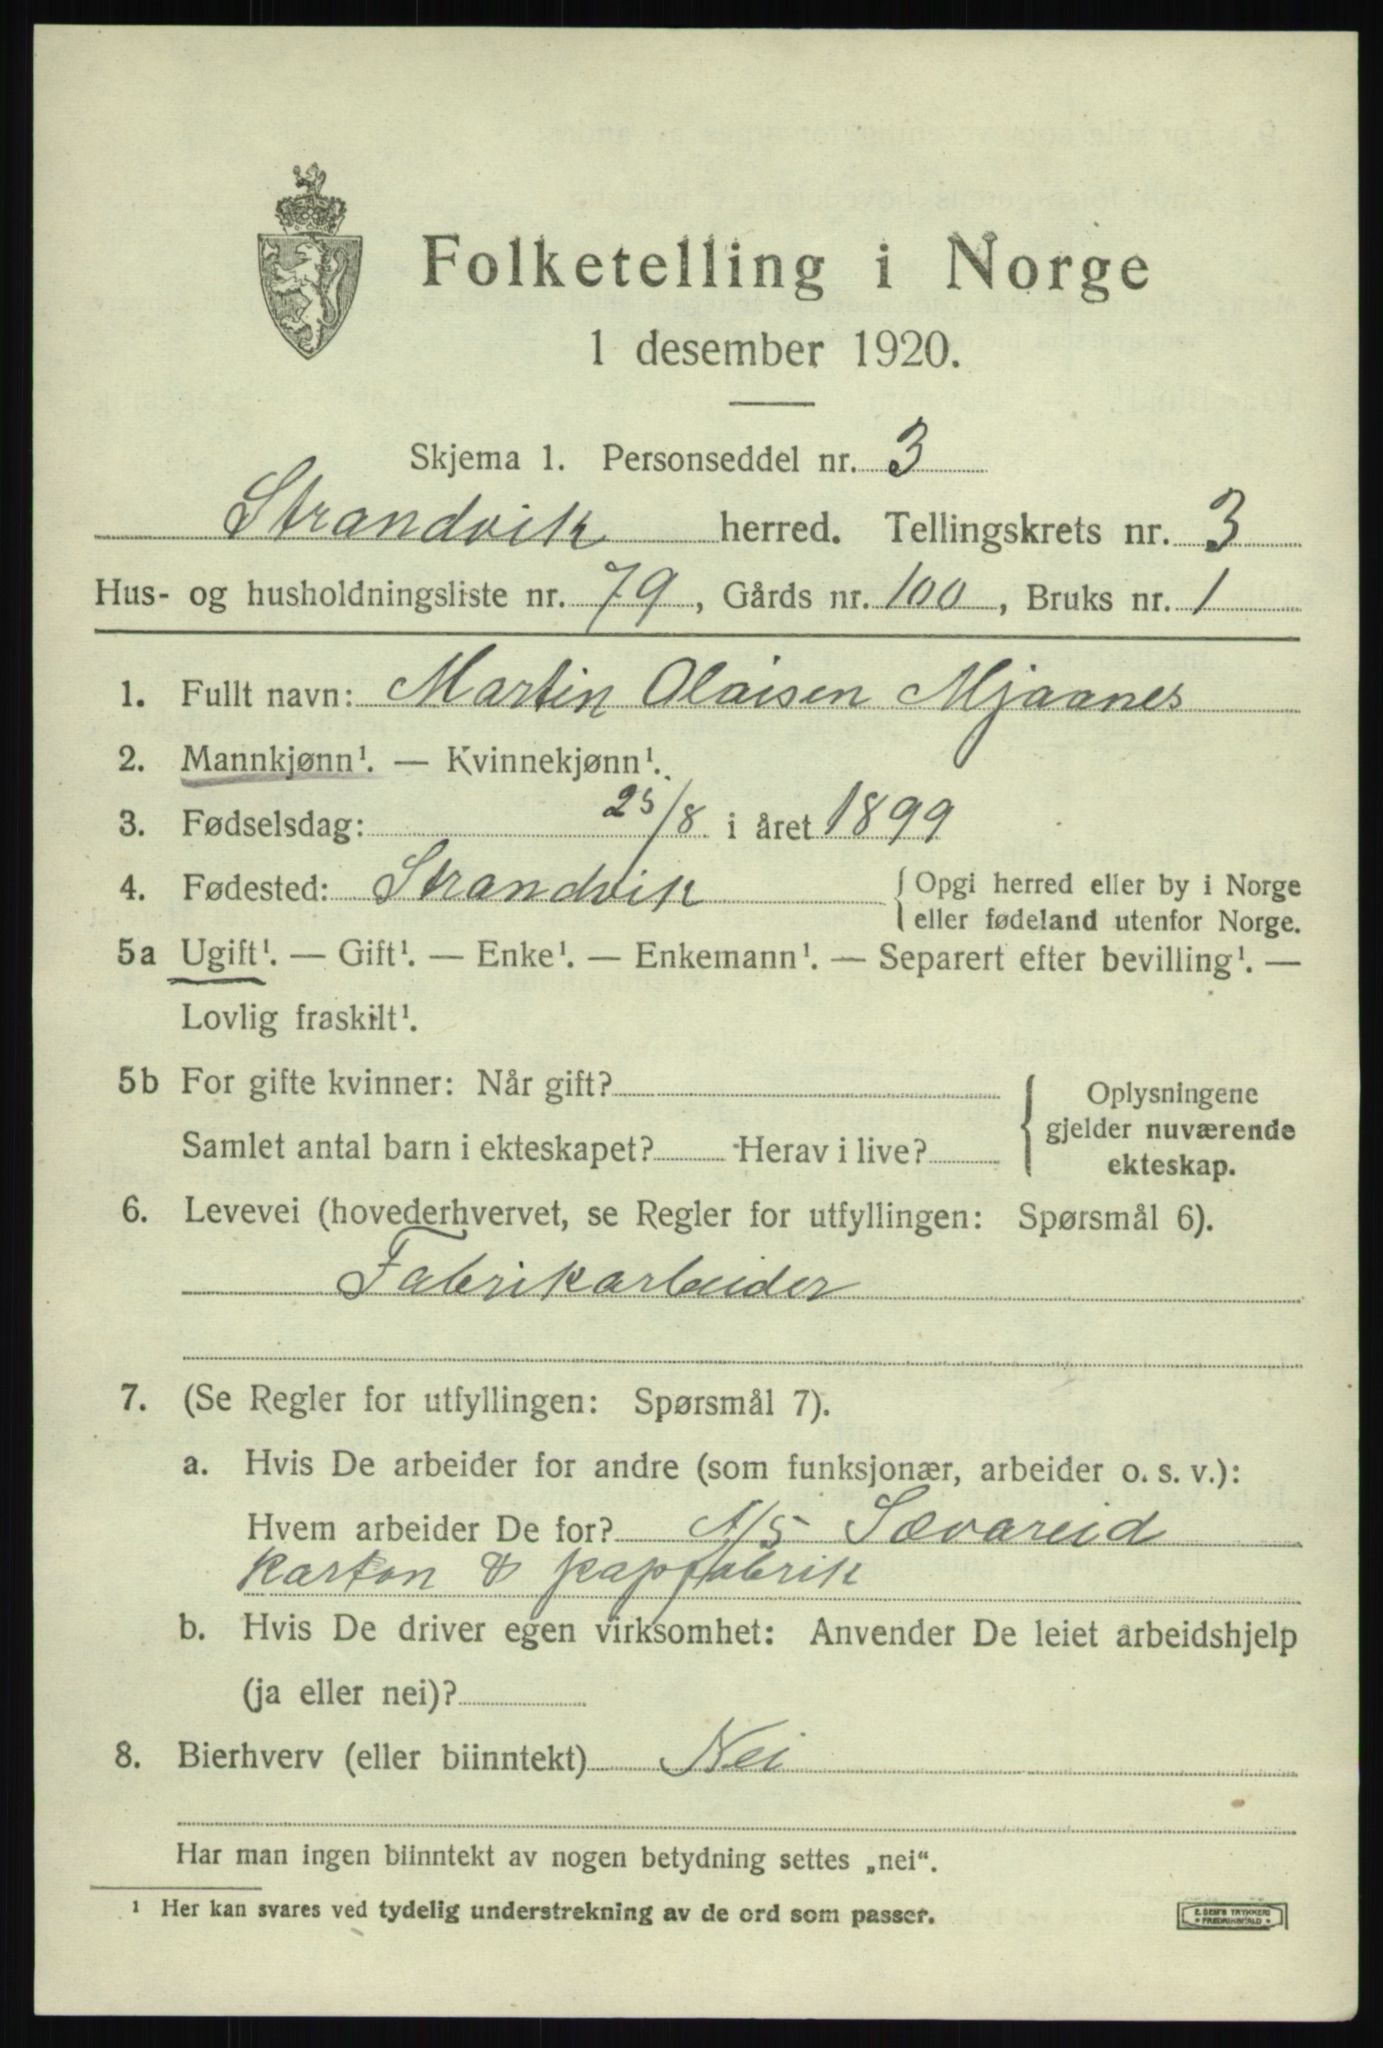 Folketelling i Norge
1 desember 1920.
Skjema 1. Personseddel nr. 3
Strandvik herred. Tellingskrets nr. 3
Hus- og husholdningsliste nr. 79, Gårds nr. 100, Bruks nr. 1
1. Fullt navn: Martin Olaisen Mjaanes
2. Mannkjønn¹. — Kvinnekjønn¹.
3. Fødselsdag: 25/8 i året 1899
4. Fødested: Strandvik { Opgi herred eller by i Norge
eller fødeland utenfor Norge.
5a Ugift¹. — Gift¹. — Enke¹. — Enkemann¹. — Separert efter bevilling¹. —
Lovlig fraskilt¹.
5b For gifte kvinner: Når gift?
Samlet antal barn i ekteskapet? Herav i live?
{ Oplysningene
gjelder nuværende
ekteskap.
6. Levevei (hovederhvervet, se Regler for utfyllingen: Spørsmål 6).
Fabrikarbeider
7. (Se Regler for utfyllingen: Spørsmål 7).
a. Hvis De arbeider for andre (som funksjonær, arbeider o. s. v.):
Hvem arbeider De for? A/S Sævareid
karton & papfabrik
b. Hvis De driver egen virksomhet: Anvender De leiet arbeidshjelp
(ja eller nei)?
8. Bierhverv (eller biinntekt) Nei
Har man ingen biinntekt av nogen betydning settes „nei“.
¹ Her kan svares ved tydelig understrekning av de ord som passer.
E. SEM'S TRYKKERI
FREDRIKSHALD